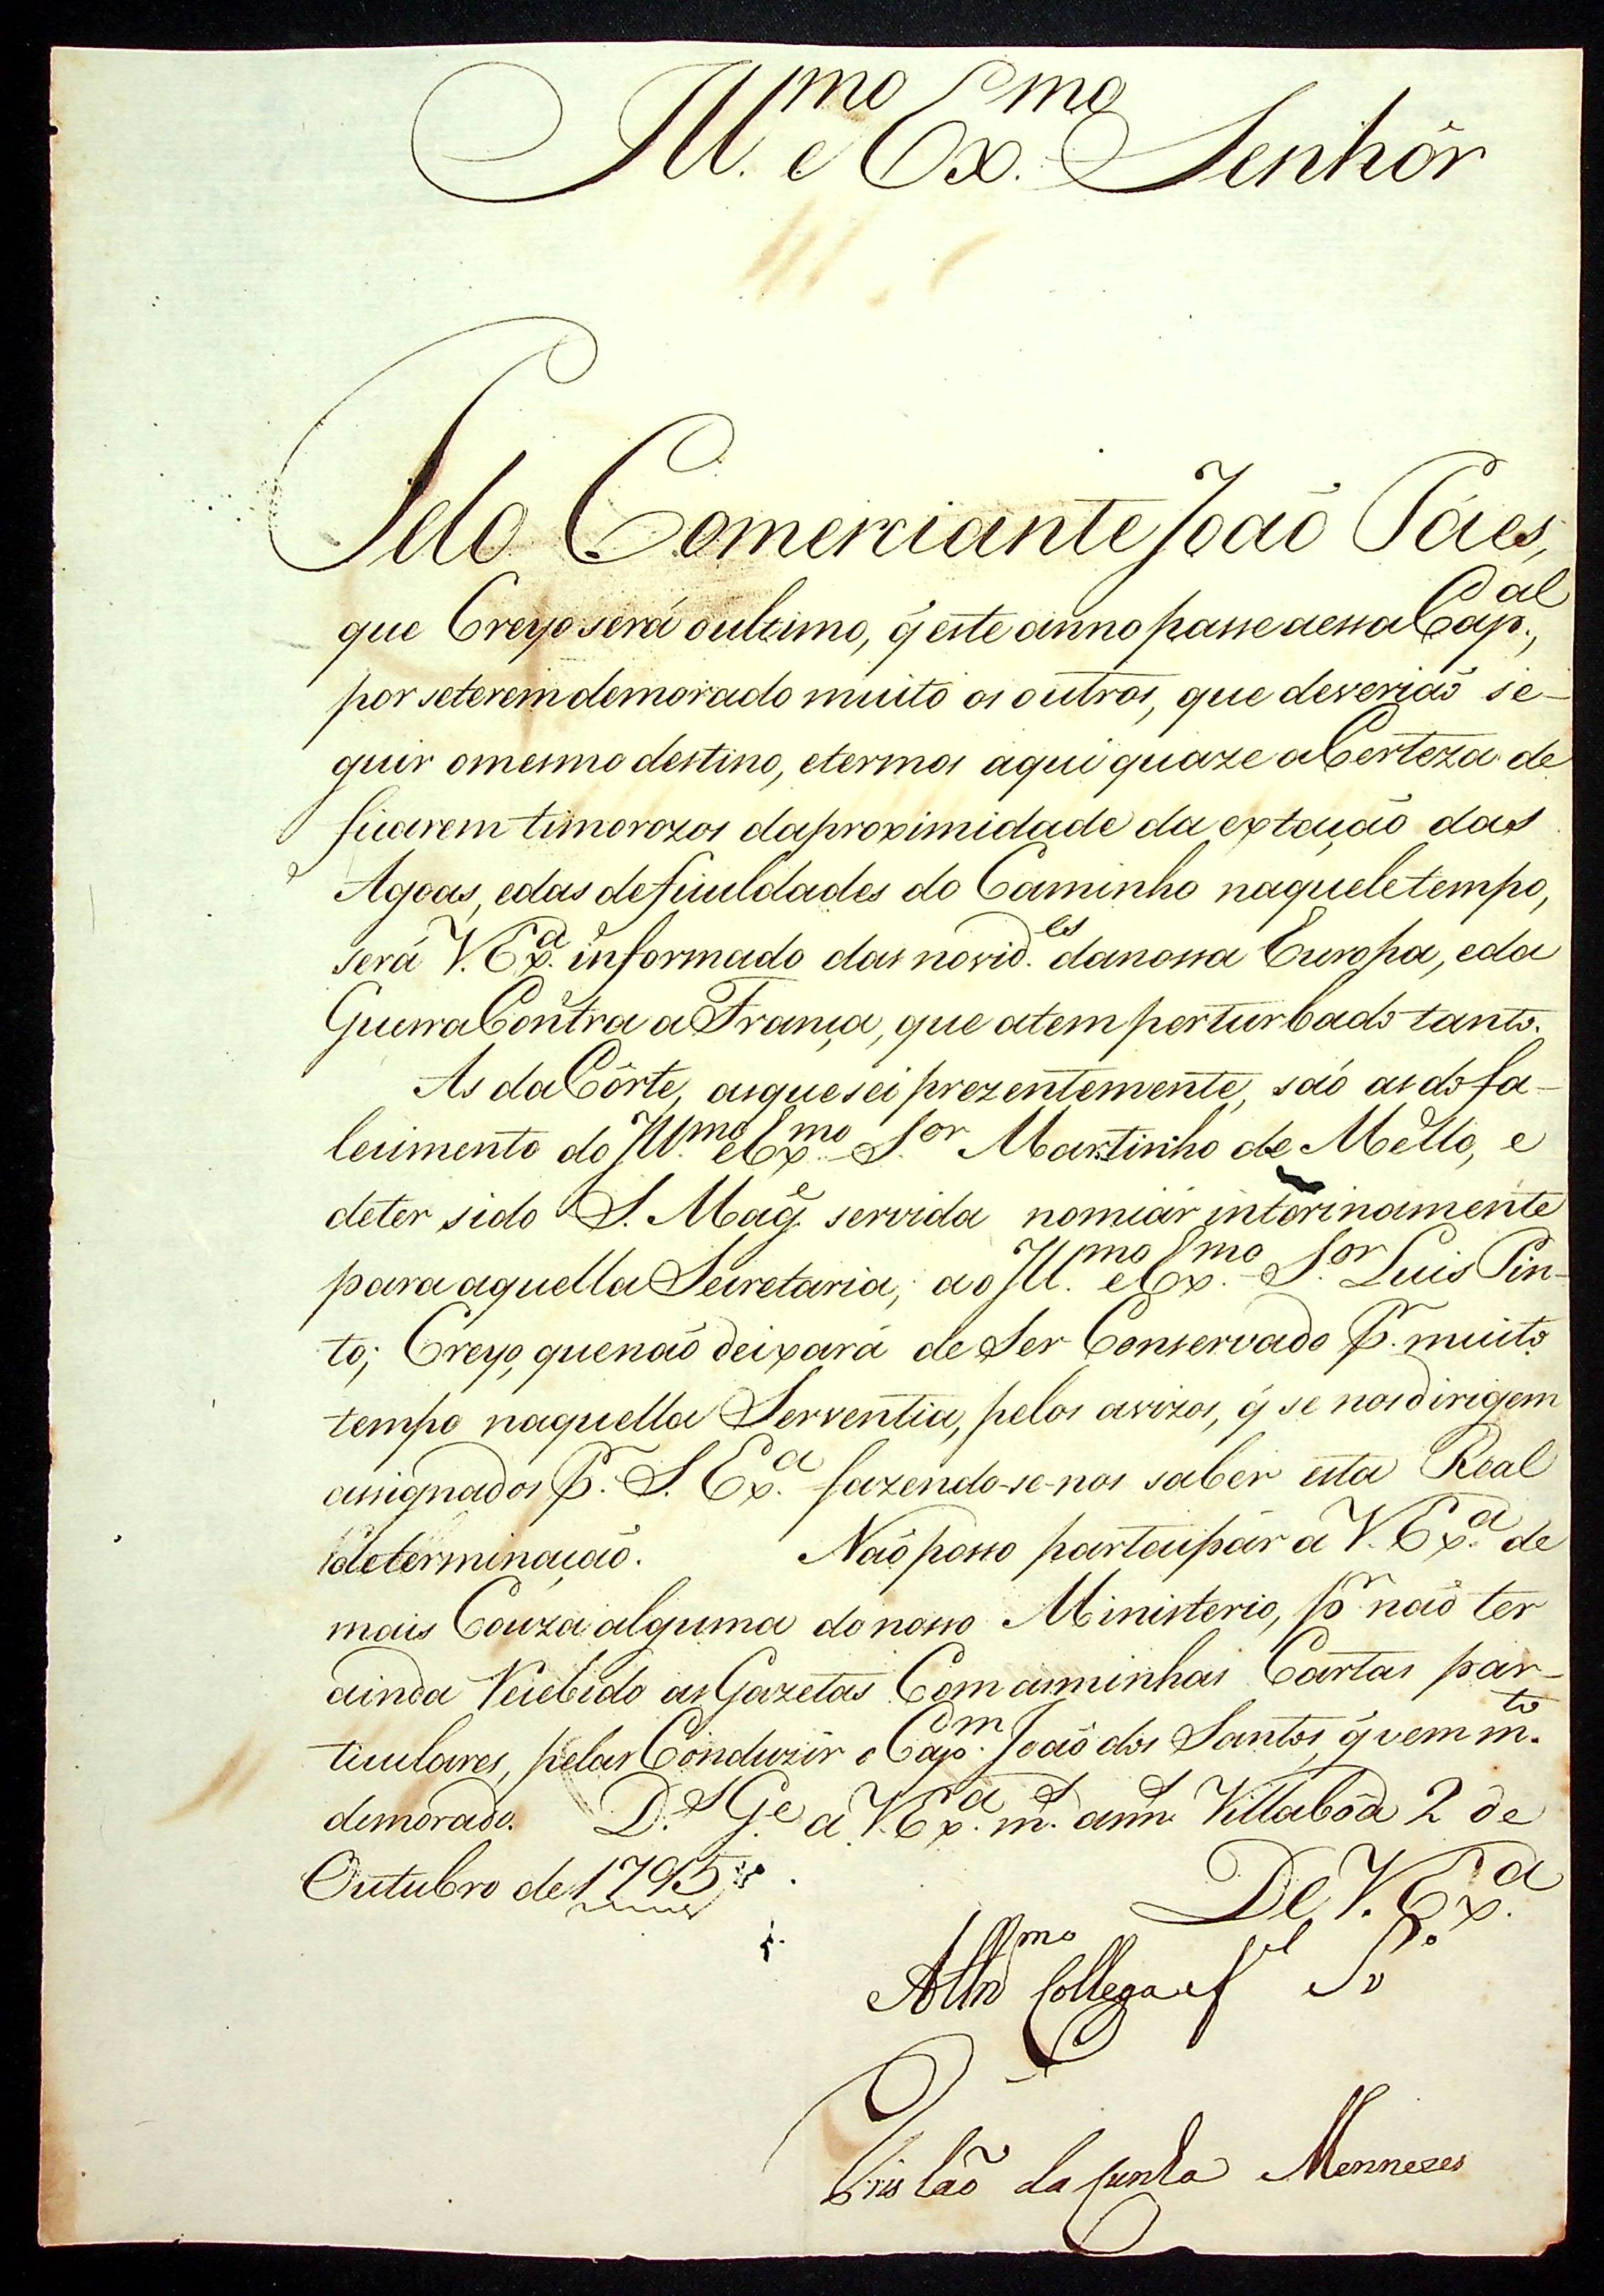 Ill.mo e Ex.mo Senhôr
Pelo Comerciante João Páes,
que Creyo será o ultimo, q̃ este anno passe a essa Cap.al,
por se terem demorado muito os outros, que deverião se-
guir o mesmo destino, e termos aqui quaze a Certeza de
ficarem timorozos da proximidade da extação das
Agoas, e das deficuldades do Caminho naquele tempo,
será V. Ex.a informado das novid.es da nossa Europa, e da
Guerra Contra a França, que a tem perturbado tanto.
As da Côrte, as que sei prezentemente, são as do fa-
lecimento do Ill.mo e Ex.mo S.or Martinho de Mello, e
de ter sido S. Mag.e servida nomiár interinamente
para aquella Secretaria, ao Ill.mo e Ex.mo S.or Luis Pin-
to; Creyo, que não deixará de Ser Conservado P.r muito
tempo naquella Serventia, pelos avizos, q̃ se nos dirigem
assignados P.r S. Ex.a fazendo-se-nos saber esta Real
determinação. Não posso partecipár a V. Ex.a de
mais Couza alguma do nosso Ministerio, p.r não ter
ainda recebido as Gazetas Com as minhas Cartas par-
ticulares, pelas Conduzir o Cap.m João dos Santos, q̃ vem m.to
demorado. D.s G.e a V. Ex.a m.s ann.s Villabôa 2 de
Outubro de 1795
De V. Ex.a
Collega
Tristão da Cunha Mennezes